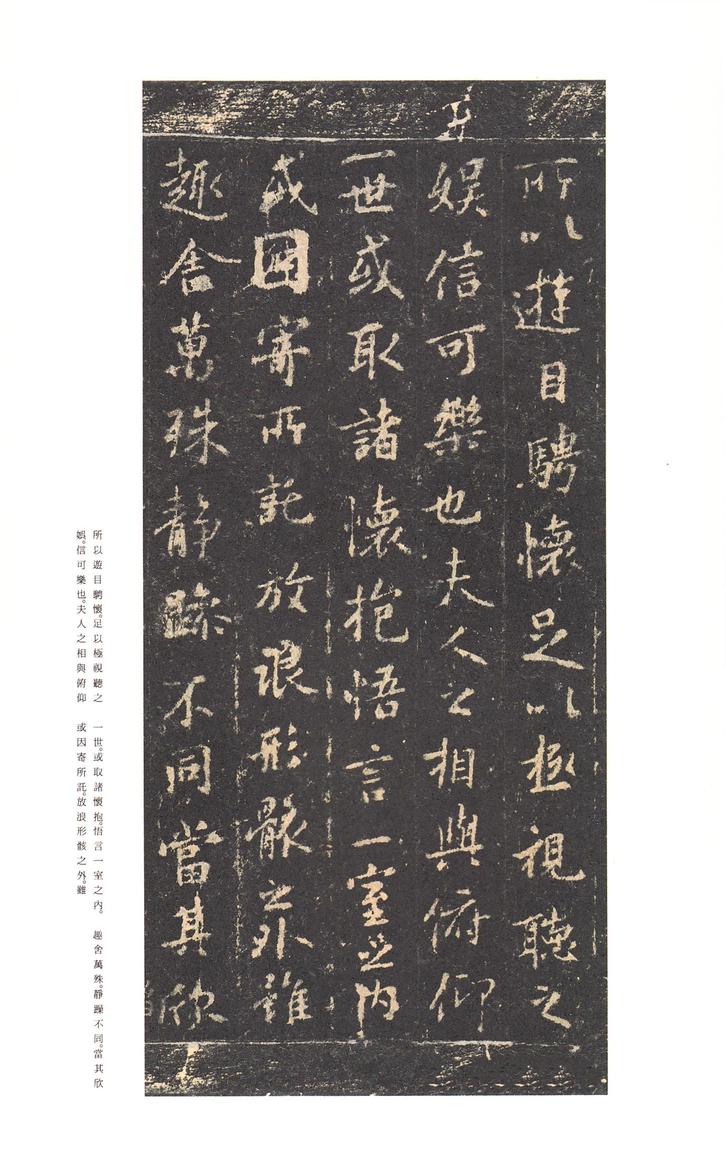 所以遊目騁懷足以極視聽之
娛信可樂也夫人之相與俯仰
一世或取諸懷抱悟言一室之內
或因寄所託放浪形骸之外雖
趣舍萬殊靜躁不同當其欣
所以遊目騁懷。足以極視聽之
娛。信可樂也。夫人之相與俯仰
一世。或取諸懷抱。悟言一室之內。
或因寄所託。放浪形骸之外。雖
趣舍萬殊。靜躁不同。當其欣